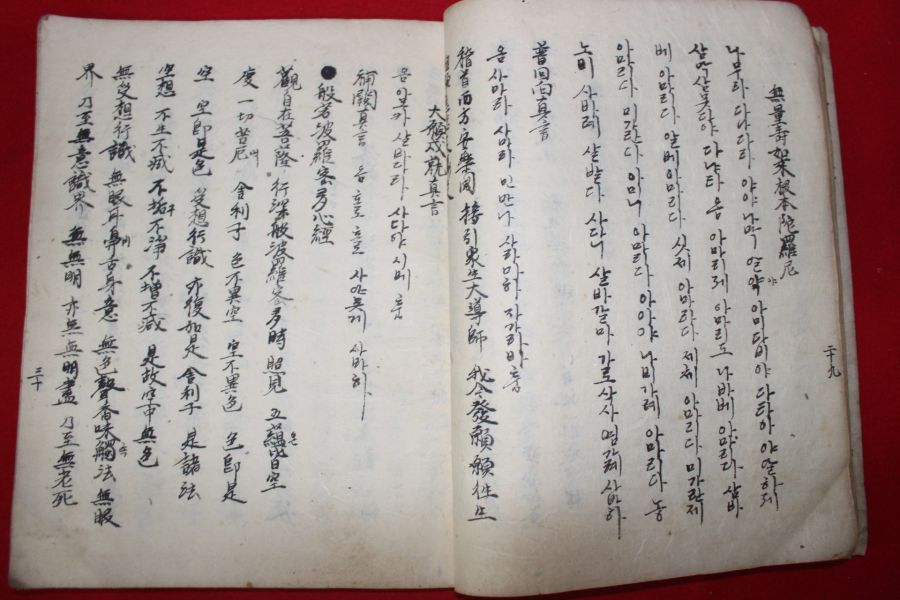 無量壽如來根本陀羅尼
나무라 다나다라 야야 나막 알약 아미다바야 다타아 야알하제
삼먁삼못다야 다냐타 옴 아마리제 아마리도 나바베 아마리다 삼바
베 아마리다 알베 아마리다 싯제 아마리다 제체 아마리다 미가란제
아마리다 미가란다 아마니 아마리다 아야야 나비가례 아마리다 농
노비 사바례 살발다 사다니 살바갈마 가로삭사 염가례 사바하
普回向真言
옴 사마라 사마라 미만나 사라마하 자가라바 훔
稽首西方安樂國 接引衆生大導師 我今發願願往生
二十九
大願成就真言
옴 아모카 살바다라 사다야 시베 훔
補闕真言 옴 호로 호로 사야목케 사바하
● 般若波羅密多心經
觀自在菩薩 行深般波羅密多時 照見 五蘊皆空
度 一切苦厄 舍利子 色不異空 空不異色 色即是
空 空即是色 受想行識 亦復如是 舍利子 是諸法
空想 不生不滅 不垢不淨 不增不减 是故空中無色
無受想行識 無眼耳鼻舌身意 無色聲香味觸法 無眼
界 乃至無意識界 無無明 亦無無明盡 乃至無老死
三十